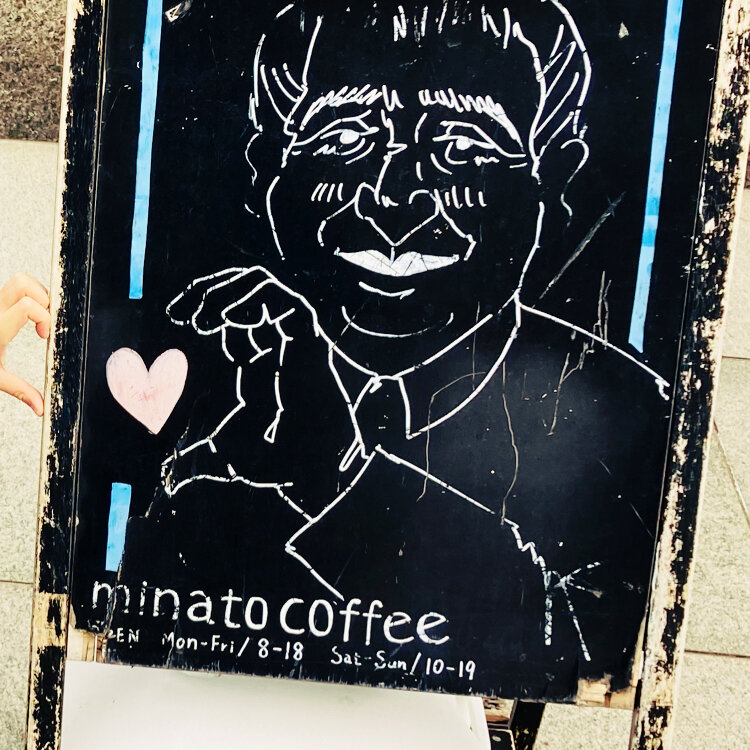 minato coffee
OPEN Mon-Fri/ 8-18 Sat-Sun/10-19